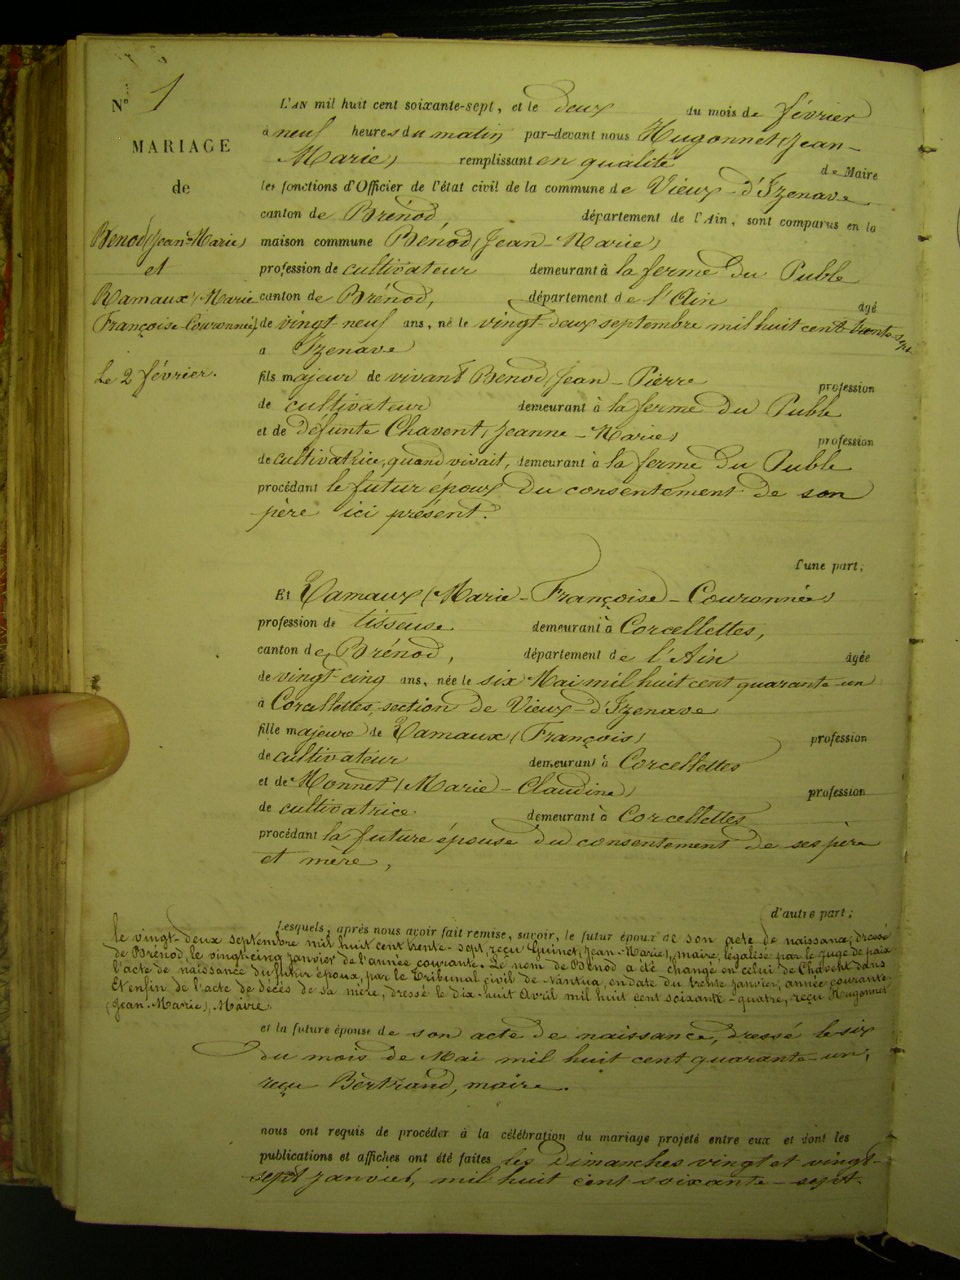 N° 1
MARIAGE
de
Bénod (Jean-Marie)
et
Ramaux (Marie
Françoise-Couronnée)
Le 2 février.
L'AN mil huit cent soixante-sept, et le deux du mois de février
à neuf heures du matin, par-devant nous Hugonnet (Jean-
Marie) remplissant en qualité de Maire
les fonctions d'Officier de l'état civil de la commune de Vieux-d'Izenave
canton de Brénod département de l'Ain, sont comparus en la
maison commune Bénod (Jean-Marie)
profession de cultivateur demeurant à la ferme du Publé
canton de Brénod, département de l'Ain âgé
de vingt neuf ans, né le vingt-deux septembre mil huit cent trente sept
à Izenave
fils majeur de vivant Benod (Jean-Pierre profession
de cultivateur demeurant à la ferme du Publé
et de défunte Chavent (Jeanne-Marie) profession
de cultivatrice, quand vivait, demeurant à la ferme du Publé
procédant le futur époux du consentement de son
père ici présent.
l'une part;
Et Ramaux (Marie-Françoise-Couronnée)
profession de tisseuse demeurant à Corcellettes,
canton de Brénod, département de l'Ain âgée
de vingt cinq ans, née le six Mai mil huit cent quarante-un
à Corcellettes, section de Vieux-d'Izenave
fille majeure de Ramaux (François) profession
de cultivateur demeurant à Corcellettes
et de Monnet (Marie-Claudine) profession
de cultivatrice demeurant à Corcellettes
procédant la future épouse du consentement de ses père
et mère,
d'autre part;
Lesquels, après nous avoir fait remise, savoir, le futur époux de son acte de naissance, dressé
le vingt-deux septembre mil huit cent trente-sept, reçu Guinet (Jean-Marie), maire, légalisé par le Juge de paix
de Brénod, le vingt-cinq janvier de l'année courante. Le nom de Bénod a été changé en celui de Chavent dans
l'acte de naissance du futur époux, par le Tribunal civil de Nantua, en date du trente janvier, année courante.
Et enfin de l'acte de décès de sa mère, dressé le dix-huit Avril mil huit cent soixante-quatre, reçu Hugonnet
(Jean-Marie), Maire.
et la future épouse de son acte de naissance, dressé le six
du mois de Mai mil huit cent quarante-un,
reçu Bertrand, maire.
nous ont requis de procéder à la célébration du mariage projeté entre eux et dont les
publications et affiches ont été faites les dimanches vingt et vingt-
sept janvier, mil huit cent soixante-sept.